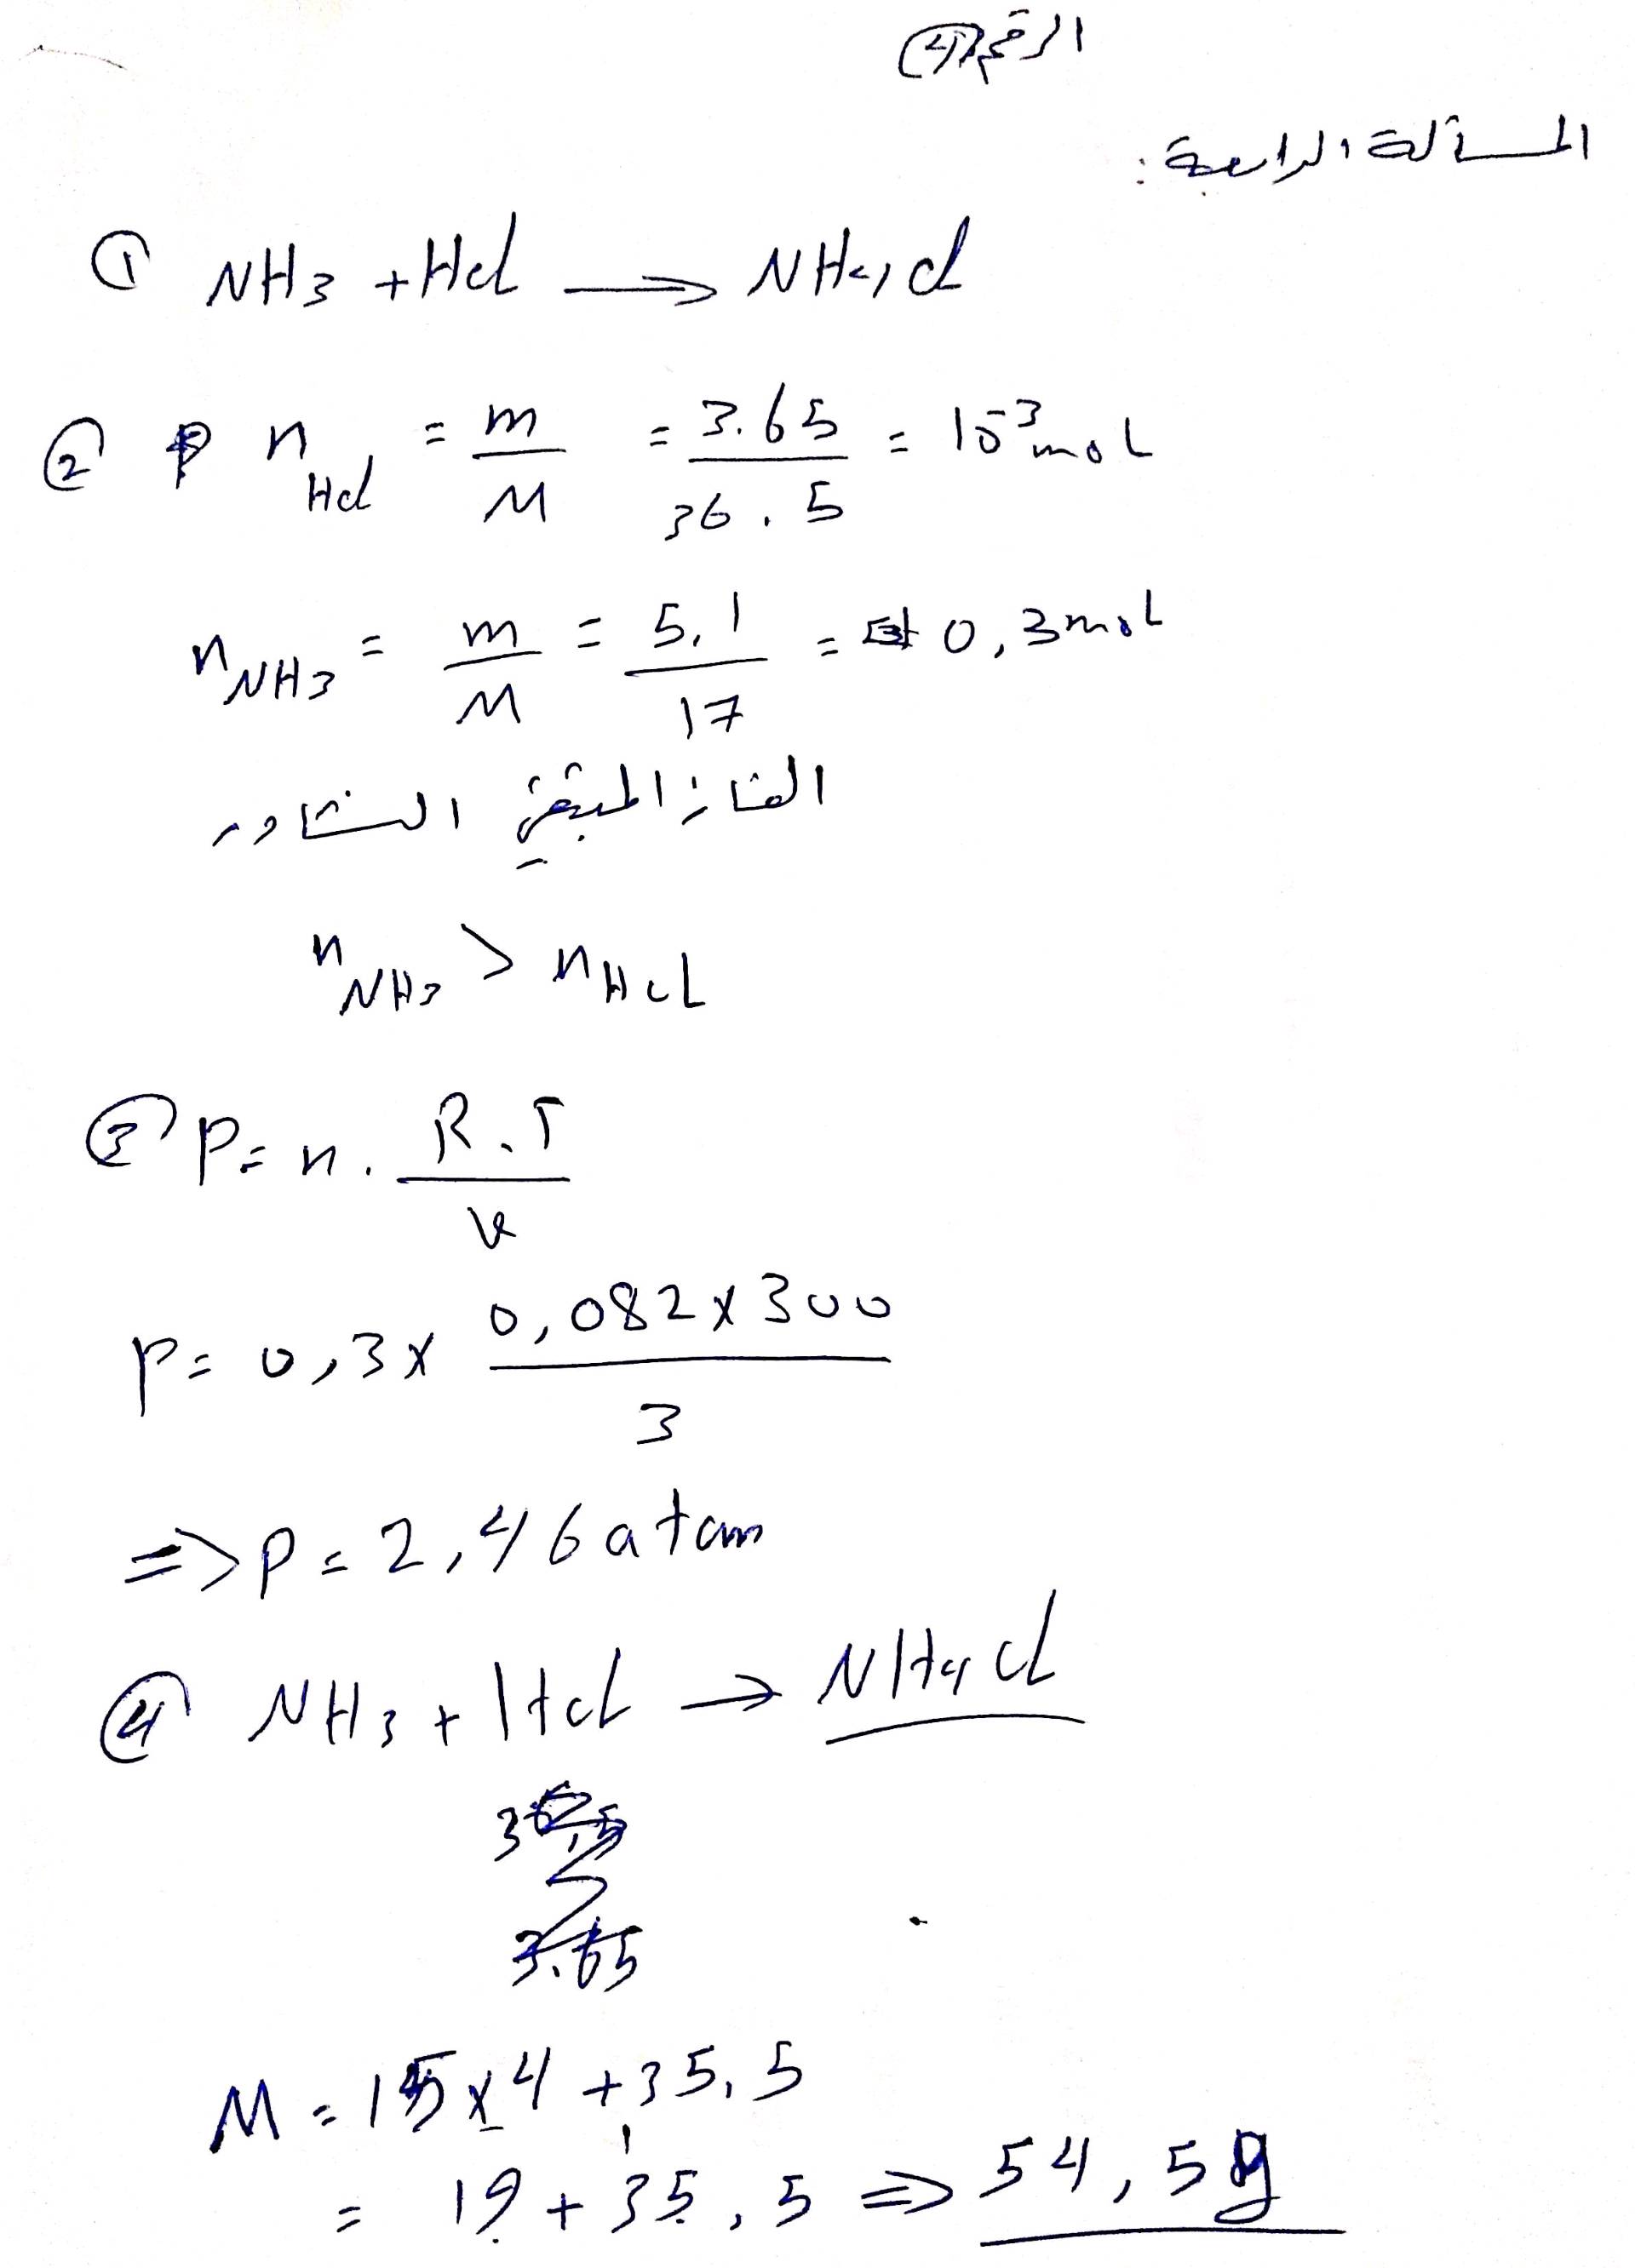 الرقم (4)
المسألة الرابعة:
① NH3 + Hcl → NH4cl
② n Hcl = m/M = 3.65/36.5 = 10^-3 mol
n NH3 = m/M = 5,1/17 = 0,3 mol
الغاز المتبقي النشادر
n NH3 > n HcL
③ P = n . R.T/v
P = 0,3 x 0,082 x 300/3
=> P = 2,46 atom
④ NH3 + HcL → NH4cl
36,5
3.65
M = 15 x 4 + 35,5
= 19 + 35,5 => 54,5 g